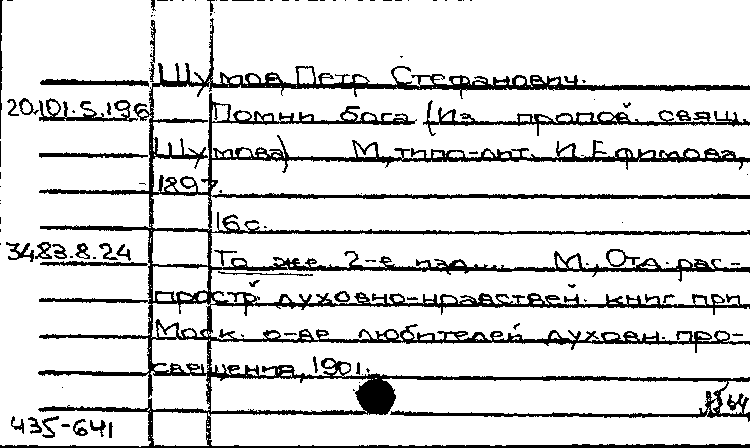 Шумов, Петр Стефанович.
20.101.5.196 Помни бога (Из пропов. свящ.
Шумова) М., типо-лит. И. Ефимова,
1897.
16 с.
3483.8.24 То же. 2-е изд.... М., Отд. рас-
простр. духовно-нравствен. книг при
Моск. о-ве любителей духовн. про-
свещения, 1901.
435-641